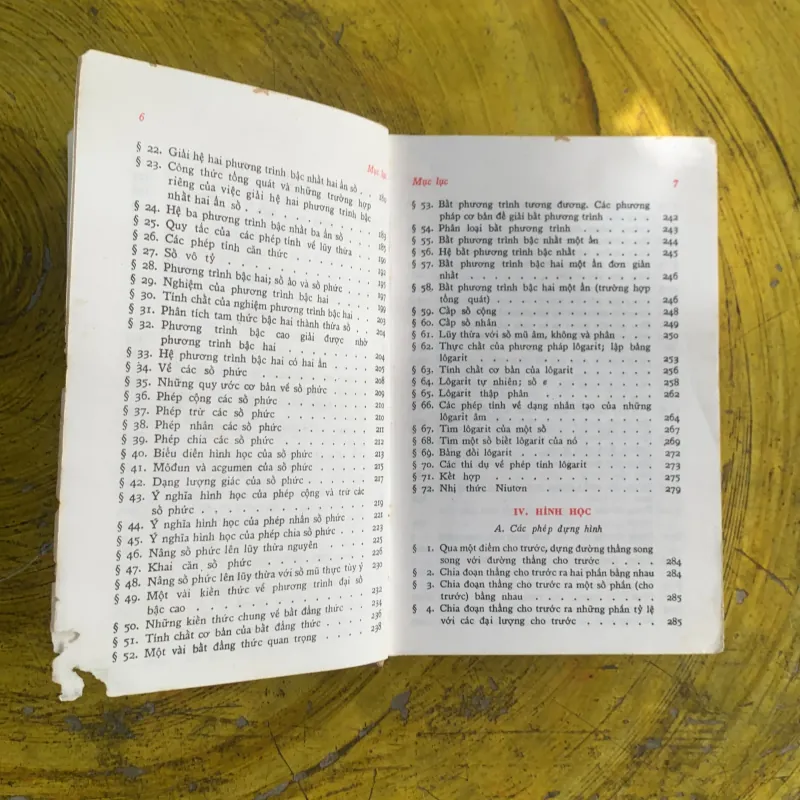 6
Mục lục
§ 22. Giải hệ hai phương trình bậc nhất hai ẩn số . . 180
§ 23. Công thức tổng quát và những trường hợp
riêng của việc giải hệ hai phương trình bậc
nhất hai ẩn số . . . . . . . . . .
§ 24. Hệ ba phương trình bậc nhất ba ẩn số . . . 185
§ 25. Quy tắc của các phép tính về lũy thừa . . 190
§ 26. Các phép tính căn thức . . . . . . 192
§ 27. Số vô tỷ . . . . . . . . . . 195
§ 28. Phương trình bậc hai; số ảo và số phức . . . . 196
§ 29. Nghiệm của phương trình bậc hai . . . . . 199
§ 30. Tính chất của nghiệm phương trình bậc hai . . 203
§ 31. Phân tích tam thức bậc hai thành thừa số . . 204
§ 32. Phương trình bậc cao giải được nhờ
phương trình bậc hai . . . . . . . . 204
§ 33. Hệ phương trình bậc hai có hai ẩn . . . . 205
§ 34. Về các số phức . . . . . . . . 208
§ 35. Những quy ước cơ bản về số phức . . . . 209
§ 36. Phép cộng các số phức . . . . . . 210
§ 37. Phép trừ các số phức . . . . . . 210
§ 38. Phép nhân các số phức . . . . . . 211
§ 39. Phép chia các số phức . . . . . . 212
§ 40. Biểu diễn hình học của số phức . . . . . 213
§ 41. Môđun và acgumen của số phức . . . . . 215
§ 42. Dạng lượng giác của số phức . . . . . 217
§ 43. Ý nghĩa hình học của phép cộng và trừ các
số phức . . . . . . . . . . 219
§ 44. Ý nghĩa hình học của phép nhân số phức . . . 221
§ 45. Ý nghĩa hình học của phép chia số phức . . . 225
§ 46. Nâng số phức lên lũy thừa nguyên . . . . 226
§ 47. Khai căn số phức . . . . . . . 226
§ 48. Nâng số phức lên lũy thừa với số mũ thực tùy ý 230
§ 49. Một vài kiến thức về phương trình đại số
bậc cao . . . . . . . . . . 232
§ 50. Những kiến thức chung về bất đẳng thức . . . 234
§ 51. Tính chất cơ bản của bất đẳng thức . . . . 236
§ 52. Một vài bất đẳng thức quan trọng . . . . 238
Mục lục 7
§ 53. Bất phương trình tương đương. Các phương
pháp cơ bản để giải bất phương trình . . . . 242
§ 54. Phân loại bất phương trình . . . . . . 243
§ 55. Bất phương trình bậc nhất một ẩn . . . . 244
§ 56. Hệ bất phương trình bậc nhất . . . . . 245
§ 57. Bất phương trình bậc hai một ẩn đơn giản
nhất . . . . . . . . . . . 246
§ 58. Bất phương trình bậc hai một ẩn (trường hợp
tổng quát) . . . . . . . . . . 246
§ 59. Cấp số cộng . . . . . . . . . 248
§ 60. Cấp số nhân . . . . . . . . . 249
§ 61. Lũy thừa với số mũ âm, không và phân . . . 250
§ 62. Thực chất của phương pháp lôgarit; lập bảng
lôgarit . . . . . . . . . . 253
§ 63. Tính chất cơ bản của lôgarit . . . . . 256
§ 64. Lôgarit tự nhiên; số e . . . . . . . 258
§ 65. Lôgarit thập phân . . . . . . . 262
§ 66. Các phép tính về dạng nhân tạo của những
lôgarit âm . . . . . . . . . . 264
§ 67. Tìm lôgarit của một số . . . . . . . 267
§ 68. Tìm một số biết lôgarit của nó . . . . . 269
§ 69. Bảng đổi lôgarit . . . . . . . . 272
§ 70. Các thí dụ về phép tính lôgarit . . . . . 273
§ 71. Kết hợp . . . . . . . . . . 275
§ 72. Nhị thức Niutơn . . . . . . . . 279
IV. HÌNH HỌC
A. Các phép dựng hình
§ 1. Qua một điểm cho trước, dựng đường thẳng song
song với đường thẳng cho trước . . . . 284
§ 2. Chia đoạn thẳng cho trước ra hai phần bằng nhau 284
§ 3. Chia đoạn thẳng cho trước ra một số phần (cho
trước) bằng nhau . . . . . . . . 285
§ 4. Chia đoạn thẳng cho trước ra những phần tỷ lệ
với các đại lượng cho trước . . . . . . 285